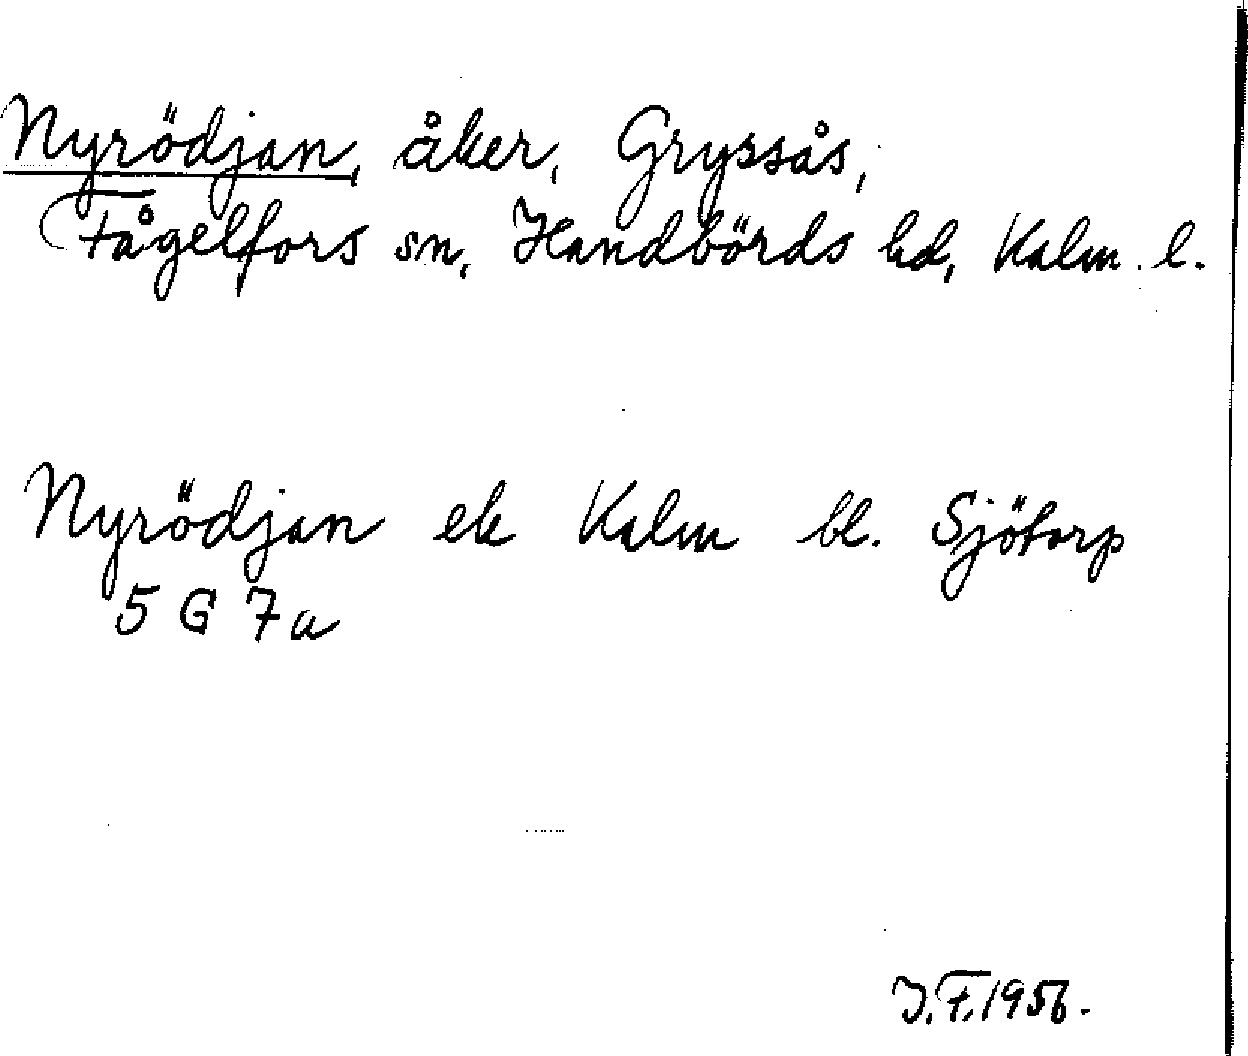 Nyrödjan, åker, Gryssås,
Fågelfors sn, Handbörds hd, Kalm. l.
Nyrödjan ek Kalm bl. Sjötorp
5 G 7a
J.F. 1956.